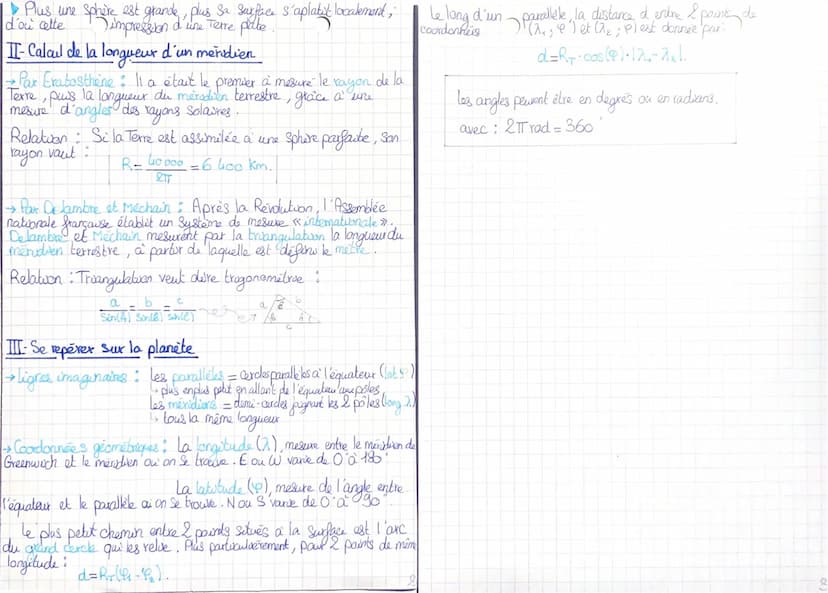 ▶ Plus une sphère est grande, plus sa surface s'aplatit localement,
d'où cette impression d'une Terre plate.
II- Calcul de la longueur d'un méridien
→ Par Eratosthène : Il a était le premier à mesuré le rayon de la
Terre, puis la longueur du méridien terrestre, grâce à une
mesure d'angles des rayons solaires.
Relation : Si la Terre est assimilée à une sphère parfaite, son
rayon vaut :
R = 40 000 / 2π = 6 400 km.
→ Par Delambre et Méchain : Après la Révolution, l'Assemblée
nationale française établit un système de mesure « internationale ».
Delambre et Méchain mesurent par la triangulation la longueur du
méridien terrestre, à partir de laquelle est définie le mètre.
Relation : Triangulation veut dire trigonométrie :
a / sin(Â) = b / sin(B̂) = c / sin(Ĉ)
a b c
III- Se repérer sur la planète
→ Lignes imaginaires : Les parallèles = cercles parallèles à l'équateur (lat φ)
↳ plus en plus petit en allant de l'équateur aux pôles
Les méridiens = demi-cercles joignant les 2 pôles (long λ)
↳ tous la même longueur
→ Coordonnées géométriques : La longitude (λ), mesure entre le méridien de
Greenwich et le méridien où on se trouve. E ou W varie de 0° à 180°
La latitude (φ), mesure de l'angle entre
l'équateur et le parallèle où on se trouve. N ou S varie de 0° à 90°
Le plus petit chemin entre 2 points situés à la surface est l'arc
du grand cercle qui les relie. Plus particulièrement, pour 2 points de mêm
longitude :
d = R_T (φ₁ - φ₂).
Le long d'un parallèle, la distance d entre 2 point de
coordonnées (λ₁ ; φ) et (λ₂ ; φ) est donnée par :
d = R_T · cos(φ) · |λ₁ - λ₂|.
Les angles peuvent être en degrés ou en radians.
avec : 2π rad = 360°